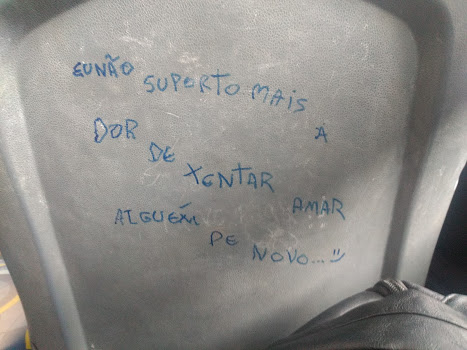 EU NÃO SUPORTO MAIS A
DOR DE TENTAR AMAR
ALGUÉM DE NOVO... :)